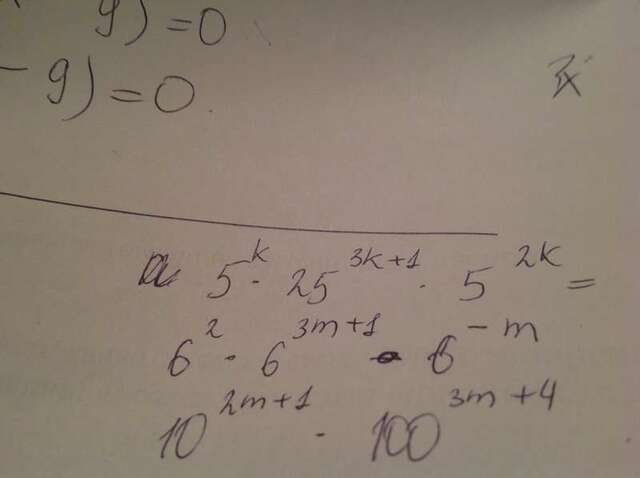 9) = 0
- 9) = 0.
a 5^k · 25^(3k+1) · 5^(2k) =
6^2 · 6^(3m+1) · 6^(-m)
10^(2m+1) · 100^(3m+4)